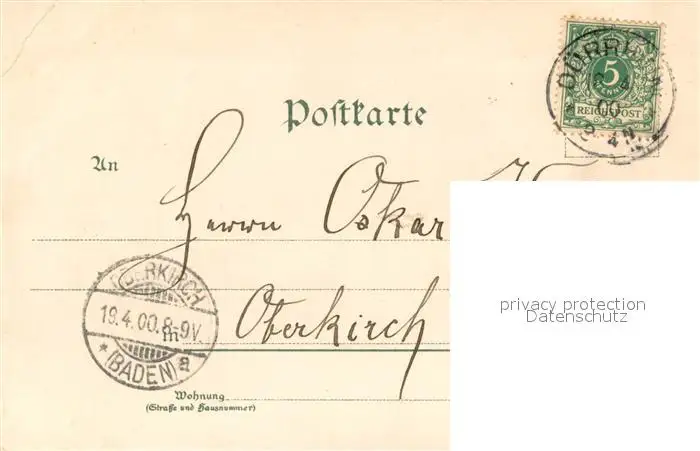 Postkarte
5
PFENNIG
REICHSPOST
An
Herrn Oskar
Oberkirch
OBERKIRCH
19.4.00.8-9V.
* (BADEN) a
in
Wohnung
(Straße und Hausnummer)
privacy protection
Datenschutz